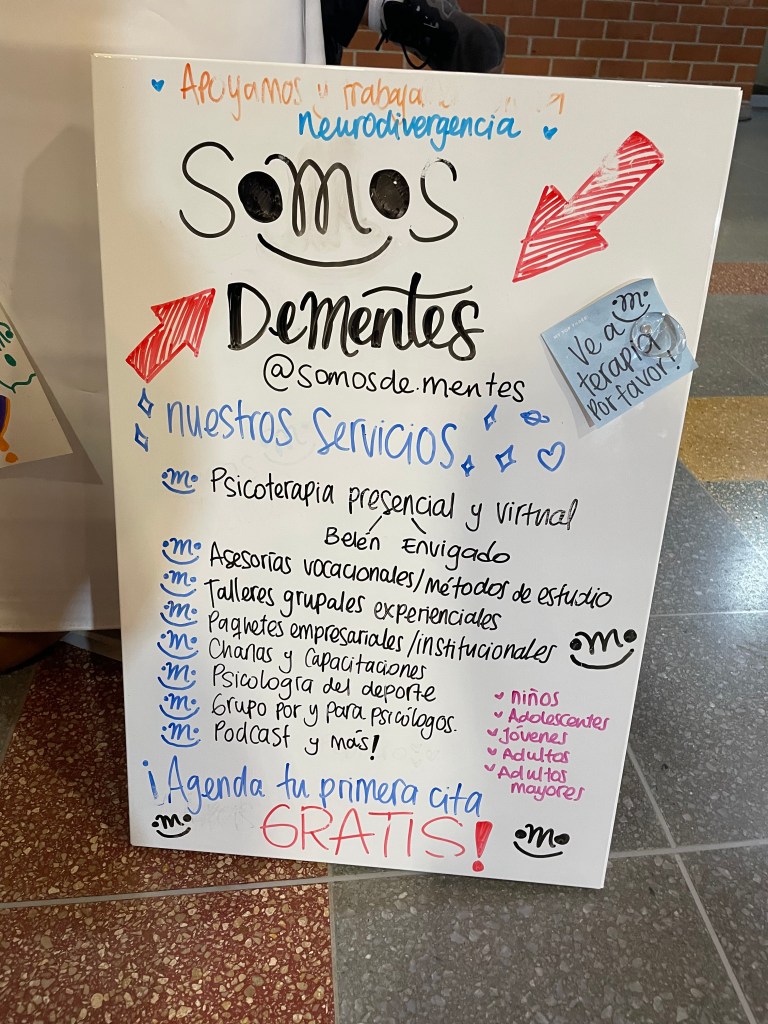 Apoyamos y trabaja
neurodivergencia
Somos
DeMentes
@somosde.mentes
Ve a
terapia
Por favor!
nuestros Servicios
Psicoterapia presencial y virtual
Belén Envigado
Asesorías vocacionales/métodos de estudio
Talleres grupales experienciales
Paquetes empresariales/institucionales
Charlas y Capacitaciones
Psicología del deporte
Grupo por y para psicólogos.
Podcast y más!
niños
Adolescentes
Jóvenes
Adultos
Adultos
mayores
¡Agenda tu primera cita
GRATIS!